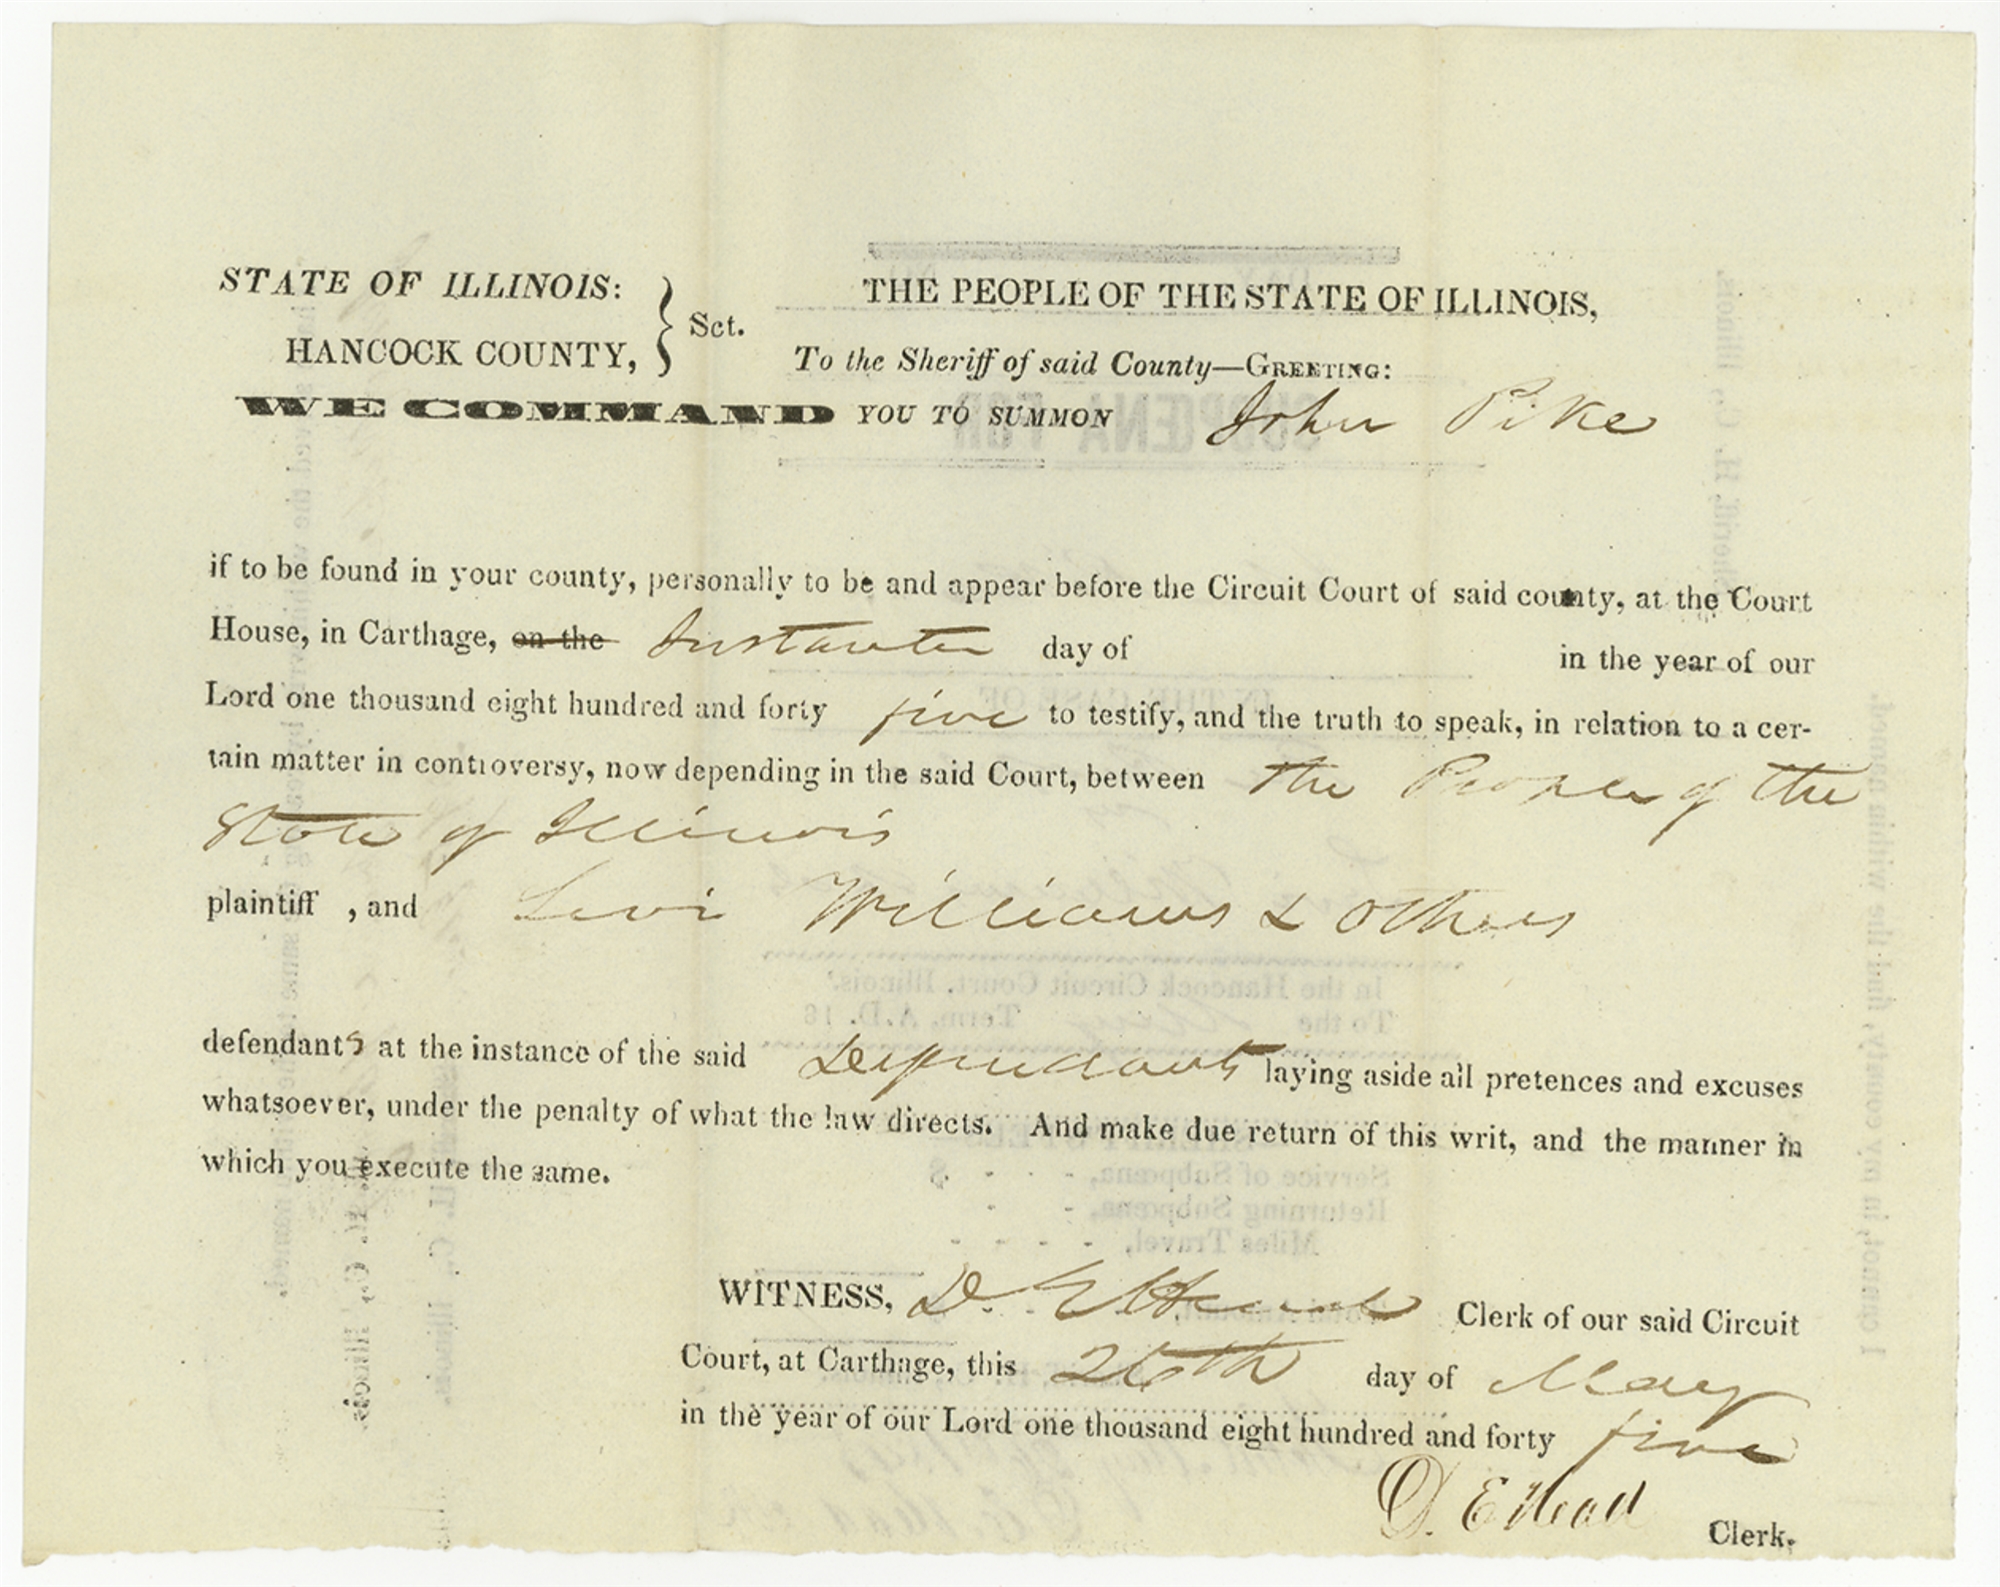 STATE OF ILLINOIS: } Sct. THE PEOPLE OF THE STATE OF ILLINOIS,
HANCOCK COUNTY, To the Sheriff of said County—GREETING:
WE COMMAND YOU TO SUMMON John Pike
if to be found in your county, personally to be and appear before the Circuit Court of said county, at the Court
House, in Carthage, on the Instanter day of in the year of our
Lord one thousand eight hundred and forty five to testify, and the truth to speak, in relation to a cer-
tain matter in controversy, now depending in the said Court, between the People of the
State of Illinois
plaintiff , and Levi Williams & Others
defendants at the instance of the said Defendants laying aside all pretences and excuses
whatsoever, under the penalty of what the law directs. And make due return of this writ, and the manner in
which you execute the same.
WITNESS, D. E Head Clerk of our said Circuit
Court, at Carthage, this 26th day of May
in the year of our Lord one thousand eight hundred and forty five
D. E Head Clerk.
SUBPŒNA FOR
IN THE CASE OF
In the Hancock Circuit Court, Illinois.
To the May Term, A.D. 18
Service of Subpœna, - - - $
Returning Subpœna, - -
Miles Travel, - - - -